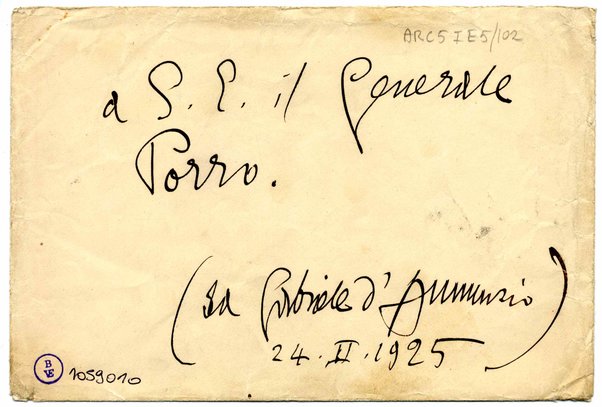 ARC5 I E5/102
a S. E. il Generale
Porro.
(da Gabriele d'Annunzio)
24. II. 1925
BVE
1059010